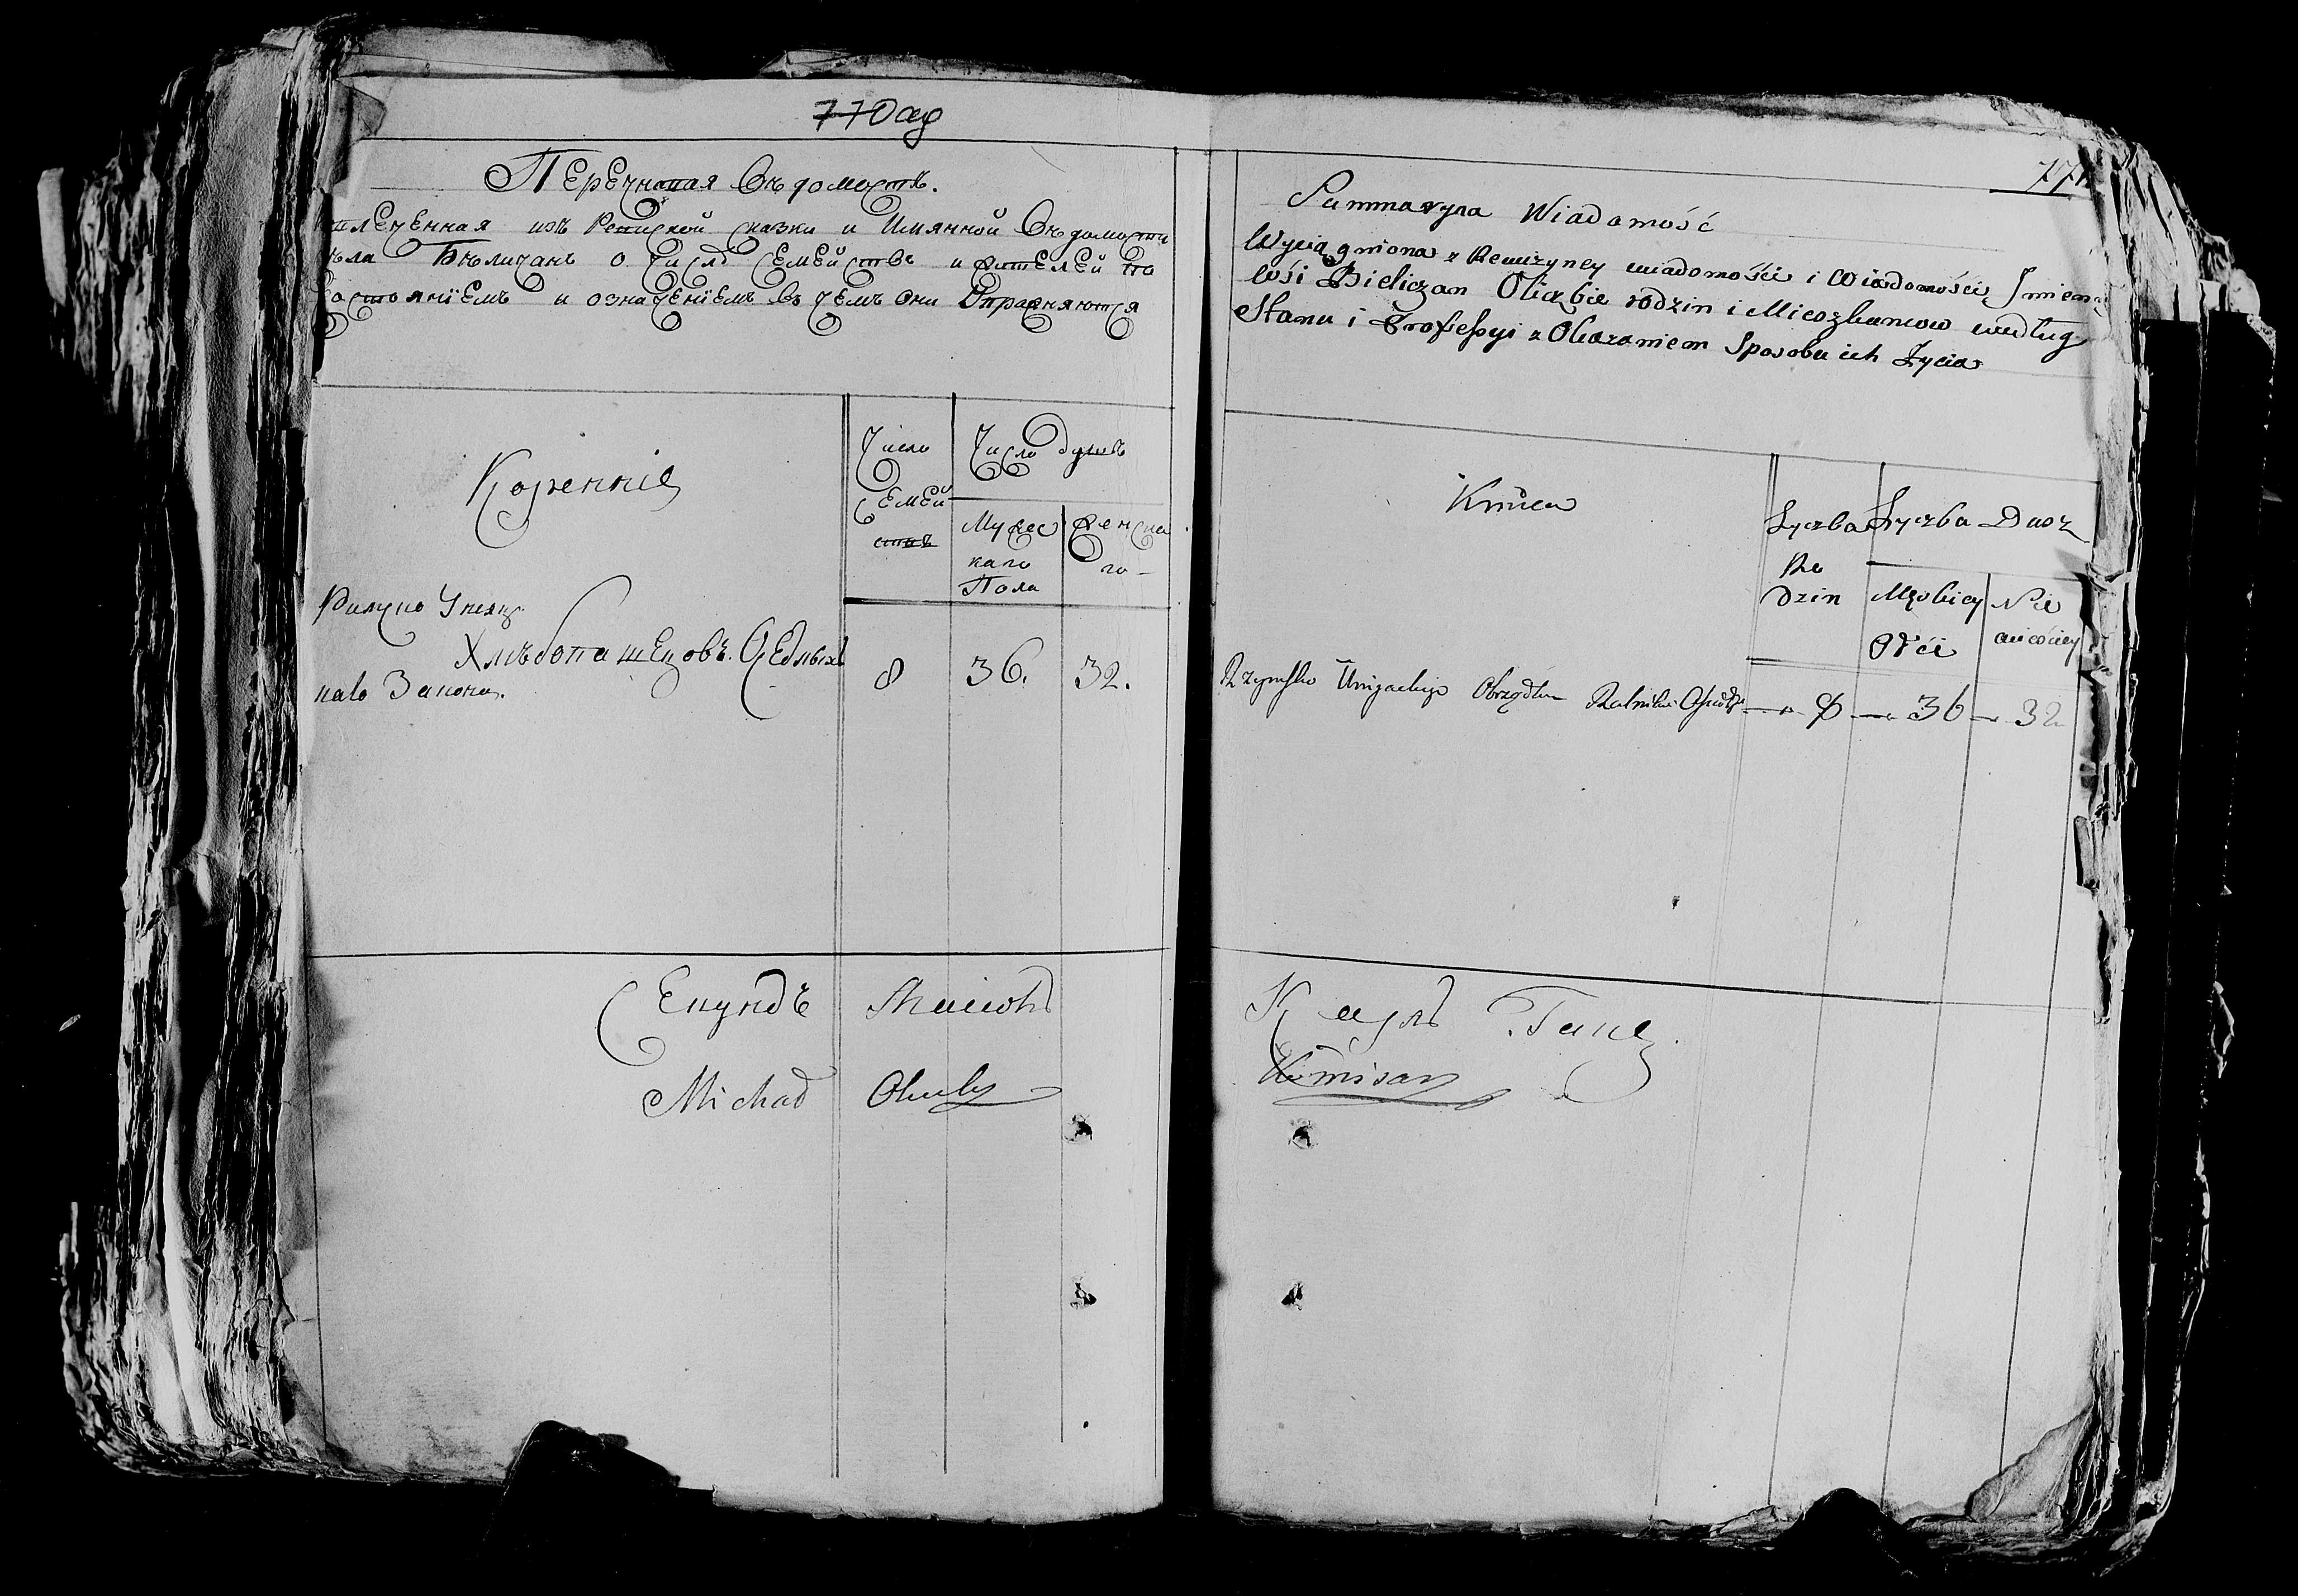 770об
Перечневая Вѣдомость.
влеченная изъ Ревиской сказки и Имянной Вѣдомости
ѣла Бѣличанъ о числѣ семействъ и жителей по
состоянїемъ и означенїемъ въ чемъ они Впражняются
Кореннїе
Число Семей ствъ
Число душъ
Мужес каго Пола
Женска го
Римско Унияц
каго Закона.
Хлѣбопашецовъ. Осѣдлыхъ
8 36. 32.
Секундъ
Michał
771
Summaryna Wiadomość
Wyciągniona z Rewizyney wiadomości i Wiadomości Imien
wsi Bieliczan O liczbie rodzin i Mieszkancow według
Stanu i Professyi z Okazaniem Sposobu ich Życia
Lyczba Ro dzin
Lyczba Dusz
Męskiey Płci
Nie wieściey
Rzymsko Uniyackiego Obrządku Rolnikow Osiadłych
8 36 32
Карлъ Ганс
Komisarz